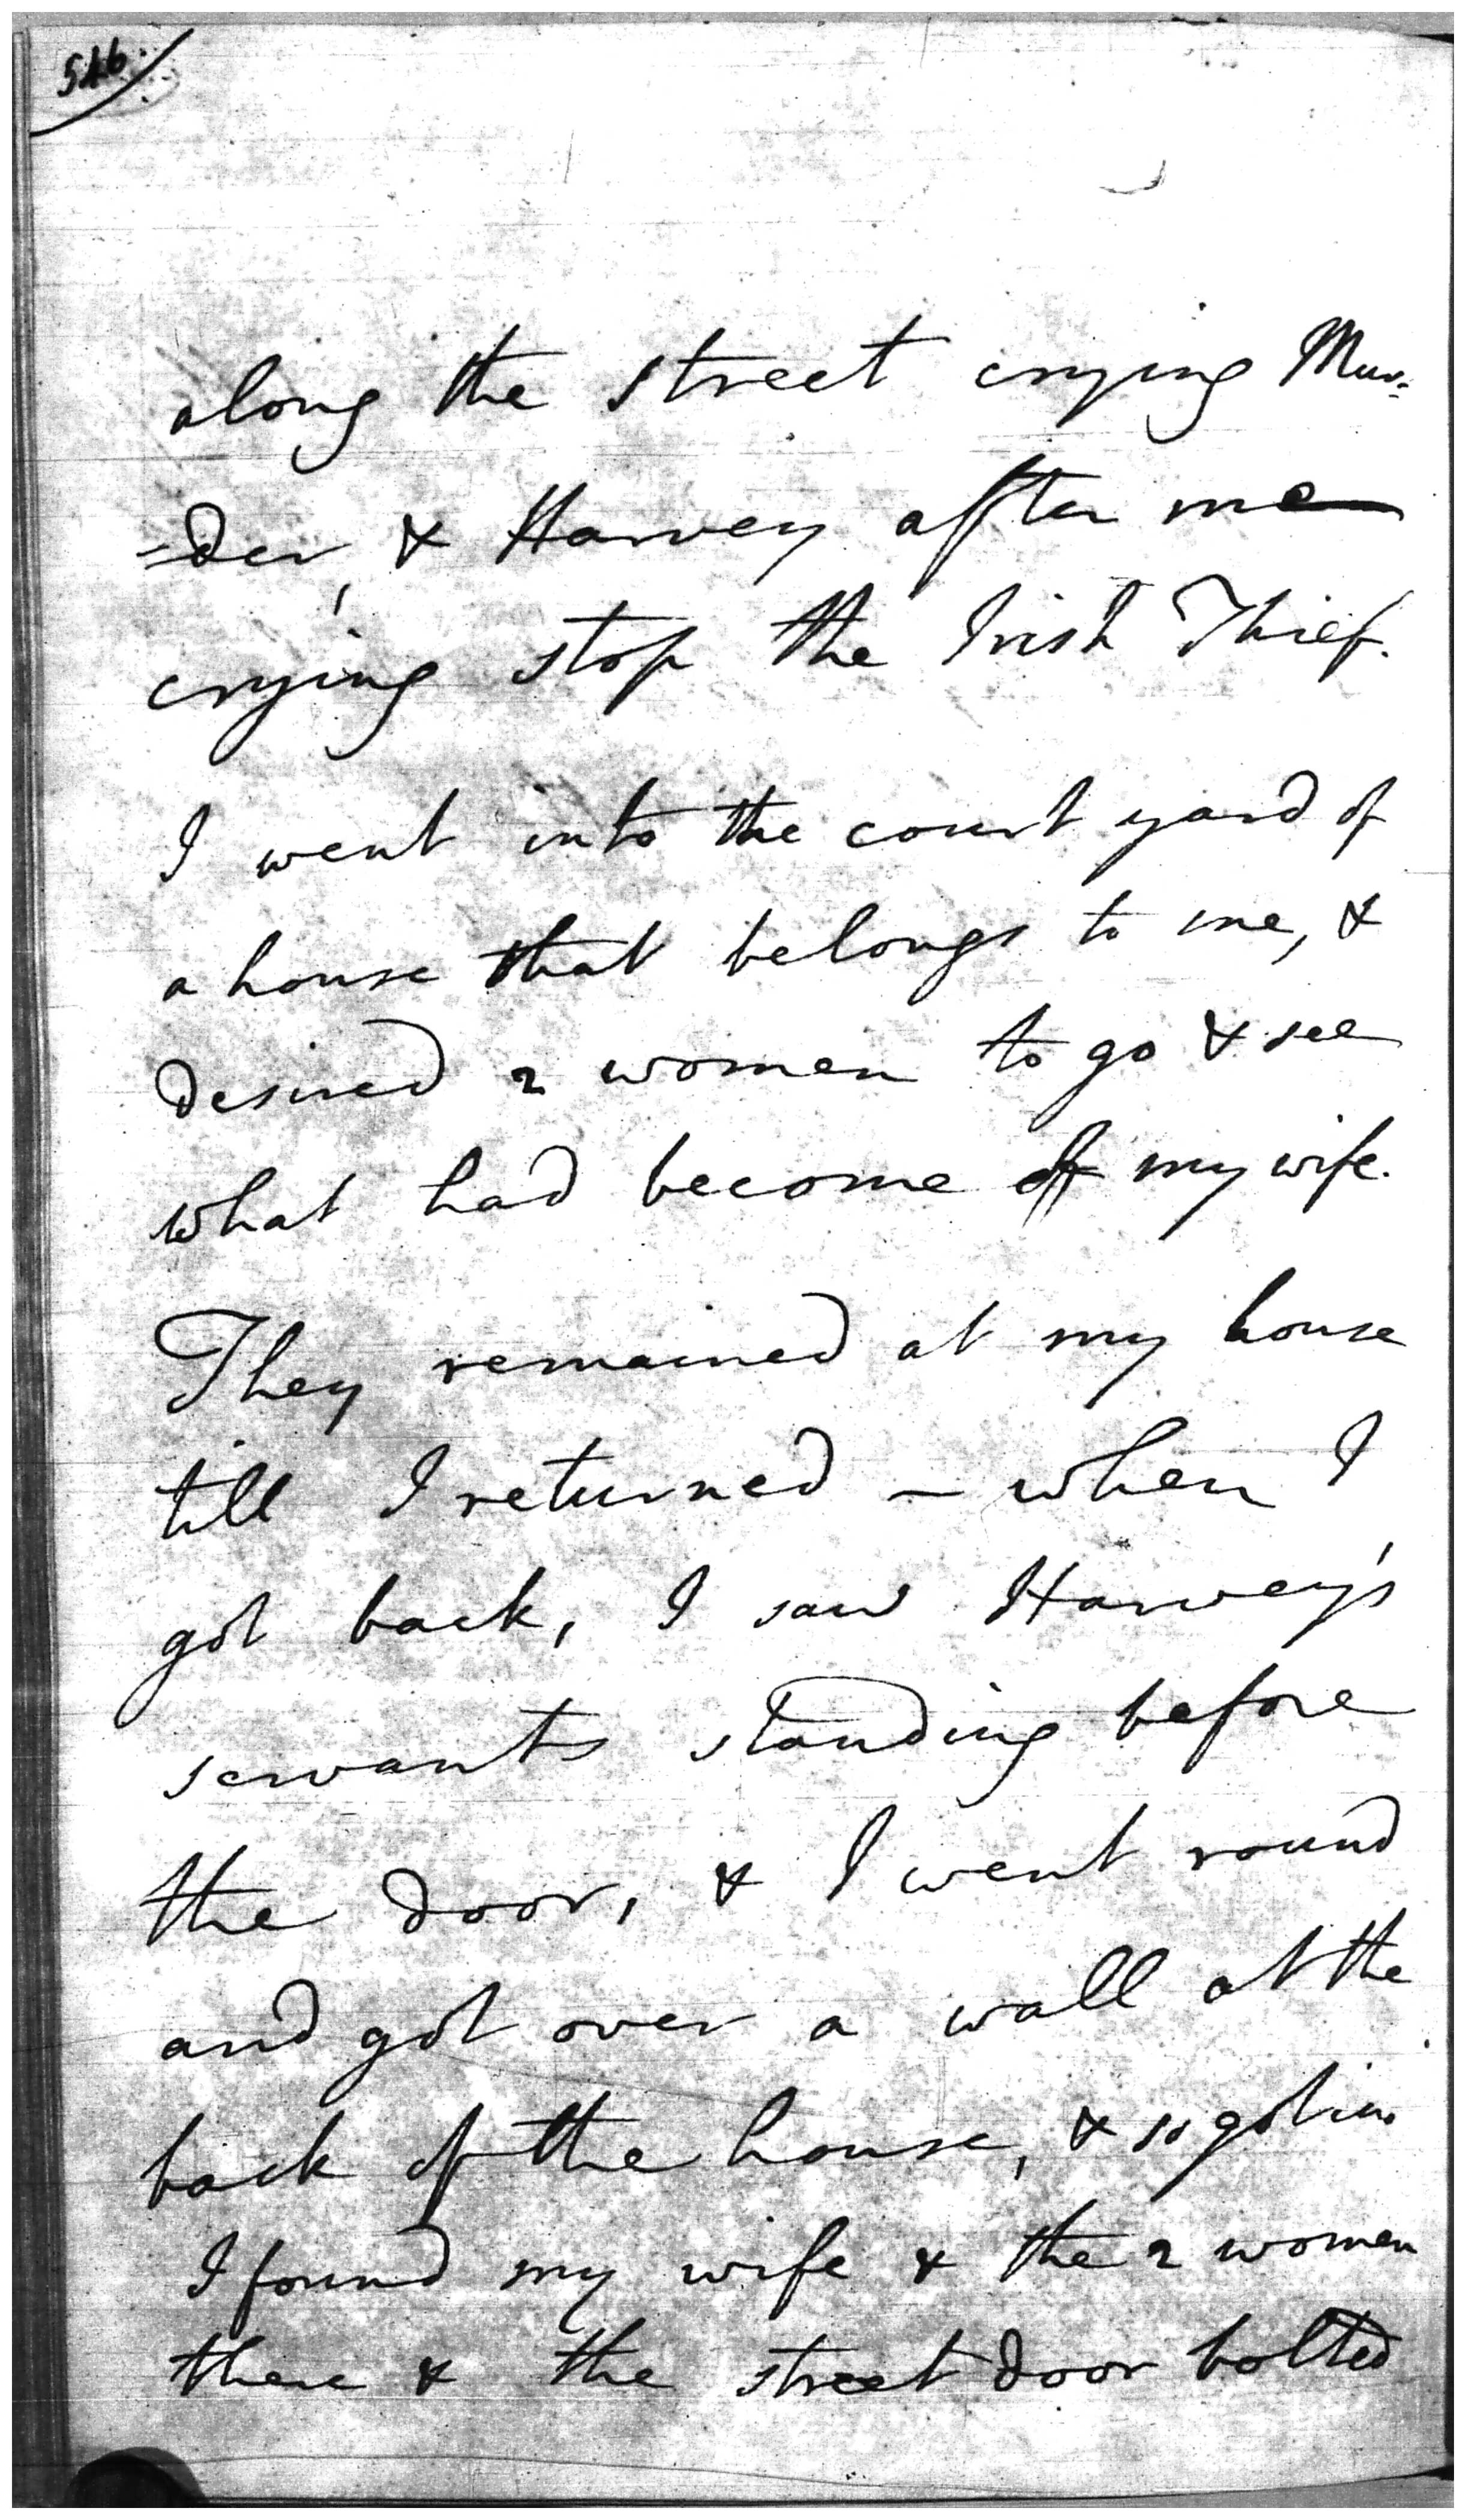 546
along the street crying Mur=
=der, & Harvey after me
crying stop the Irish Thief.
I went into the court yard of
a house that belongs to me, &
desired 2 women to go & see
what had become of my wife.
They remained at my house
till I returned – when I
got back, I saw Harvey's
servants standing before
the door, & I went round
and got over a wall at the
back of the house, & so got in.
I found my wife & the 2 women
there & the street door bolted